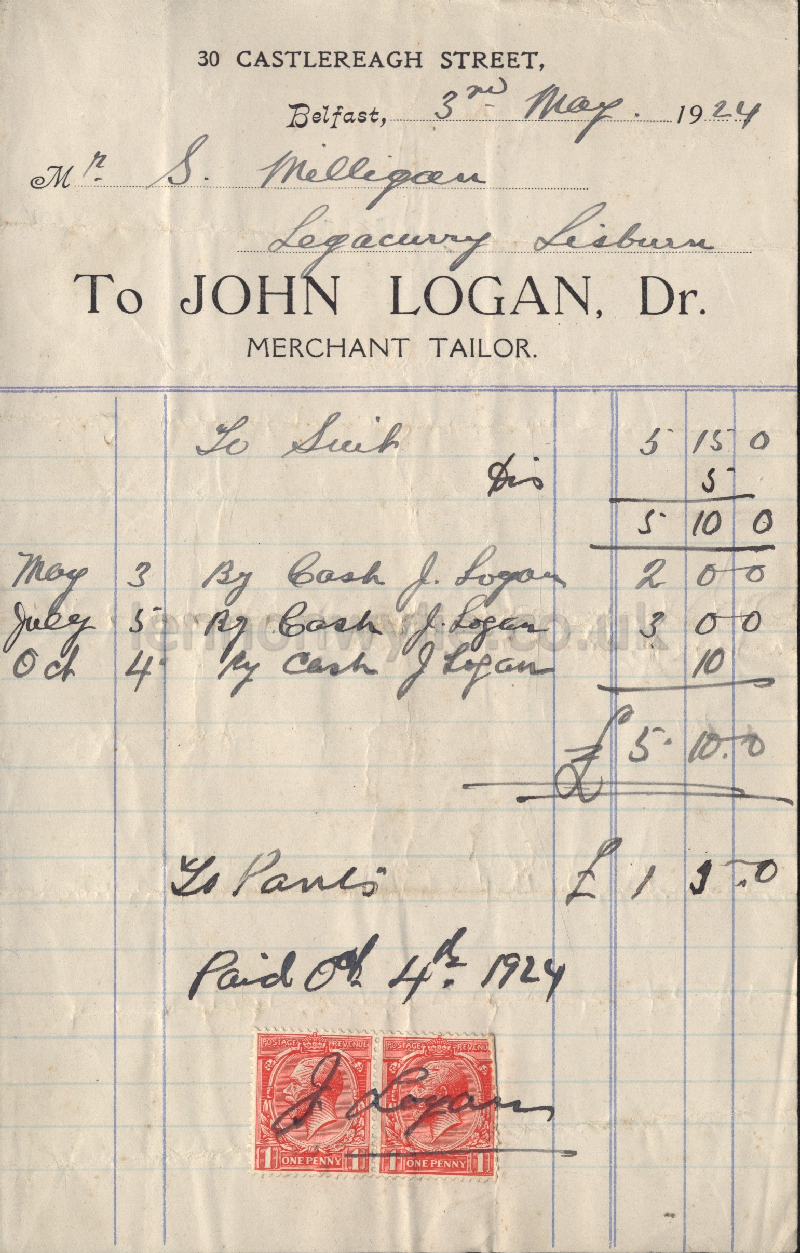 30 CASTLEREAGH STREET,
Belfast, 3rd May. 1924
Mr. S. Milligan
Legacurry Lisburn
To JOHN LOGAN, Dr.
MERCHANT TAILOR.
To Suit 5 15 0
Dis 5
5 10 0
May 3 By Cash J. Logan 2 0 0
July 5 By Cash J. Logan 3 0 0
Oct 4 By Cash J Logan 10
£ 5 10. 0
To Pants £ 1 0
Paid Oct 4th 1924
POSTAGE REVENUE POSTAGE REVENUE
J Logan
1 ONE PENNY 1 1 ONE PENNY 1
lennonwylie.co.uk